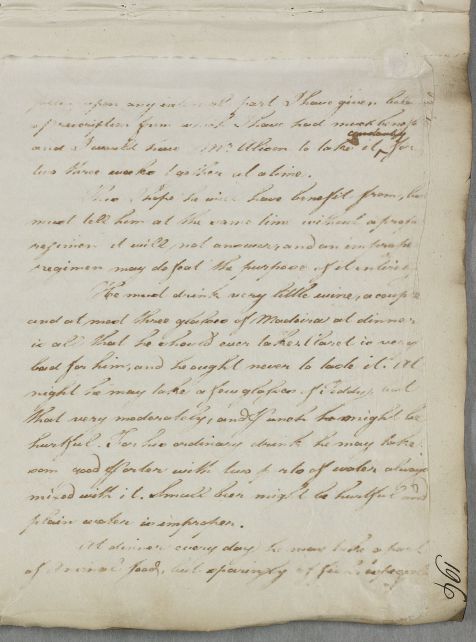 upon any internal part I have given below
prescription from which I have had much benefit
constantly
and I would have Mr to take it for
two three weeks together at a time.
This I hope he will have benefit from, but
must tell him at the same time without a proper
regimen it will not answer, and an improper
regimen may defeat the purpose of it entirely
He must drink very little wine, a couple
and at most three glasses of Madeira at dinner
is all that he should ever take: Claret is very
bad for him, and he ought never to taste it: At
night he may take a few glasses of Toddy, but
that very moderately, and Punch might be
hurtful. For his ordinary drink he may take
som good Porter with two of water always
mixed with it. Small beer might be hurtful and
plain water is improper.
At dinner every day he may take a part
of Animal food, but sparingly of
196